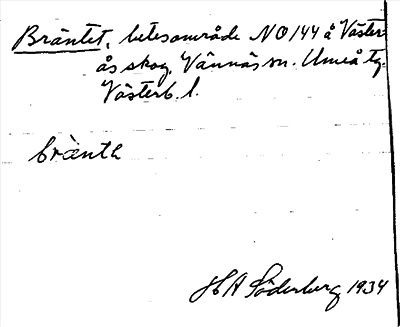 Bräntet, betesområde NO 144 å Väster-
ås skog. Vännäs sn. Umeå tg.
Västerb. l.
brænte
H A Söderberg 1934